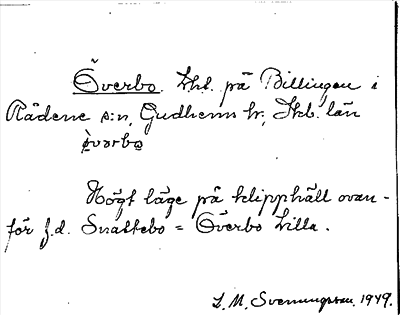 Överbo. Lht. på Billingen i
Rådene s:n, Gudhems hr, Skb. län
överbo
Högt läge på klipphäll ovan-
för f.d. Snattebo = Överbo Lilla.
L. M. Svenungsson. 1949.